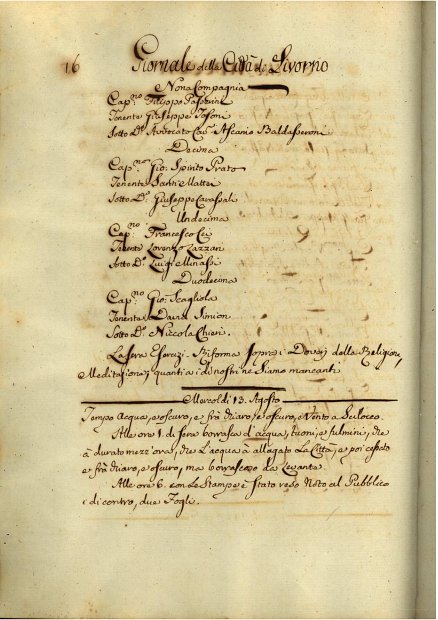 16 Giornale della Città di Livorno
Nona Compagnia
Cap.no Filippo Passerini
Tenente Giuseppe Tosoni
Sotto D.e Avvocato Cav. Ascanio Baldasseroni
Decima
Cap.no Gio: Spirito Prato
Tenente Santi Mattei
Sotto D.e Giuseppe Cavassali
Undecima
Cap.no Francesco Cei
Tenente Lorenzo Lazzan
Sotto D.e Luigi Minassi
Duodecima
Cap.no Gio: Scagliola
Tenente David Simion
Sotto D.e Niccola Chieri.
La sera Esercizi. Riforma sopra i Doveri della Religion,
Meditazione; quanti a i di nostri ne siamo mancanti
Mercoldì 13. Agosto
Tempo Acqua, e oscuro, e frà chiaro, e oscuro, e Vento a Scilocco
Alle ore 1. di sera borrasca d'acqua, tuoni, e fulmini, che
à durato mezz'ora, che L'acqua à allagato La Città, e poi cessato
e frà chiaro, e oscuro, ma borrascoso da Levante
Alle ore 6. con Le Stampe è stato reso Noto al Pubblico
i di contro, due Fogli.